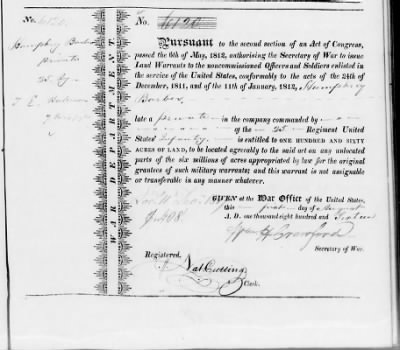 No. 6120.
Humphrey
Private
WAR DEPARTMENT
No. 6120
Pursuant to the second section of an Act of Congress,
passed the 6th of May, 1812, authorising the Secretary of War to issue
Land Warrants to the noncommissioned Officers and Soldiers enlisted in
the service of the United States, conformably to the acts of the 24th of
December, 1811, and of the 11th of January, 1812, Humphrey
Barber
late a private in the company commanded by
of the Regiment United
States' Infantry, is entitled to ONE HUNDRED AND SIXTY
ACRES OF LAND, to be located agreeably to the said act on any unlocated
parts of the six millions of acres appropriated by law for the original
grantees of such military warrants; and this warrant is not assignable
or transferable in any manner whatever.
GIVEN at the War Office of the United States,
this first day of August
A. D. one thousand eight hundred and sixteen
Wm H Crawford
Secretary of War.
Registered.
Nat Cutting
Clerk.